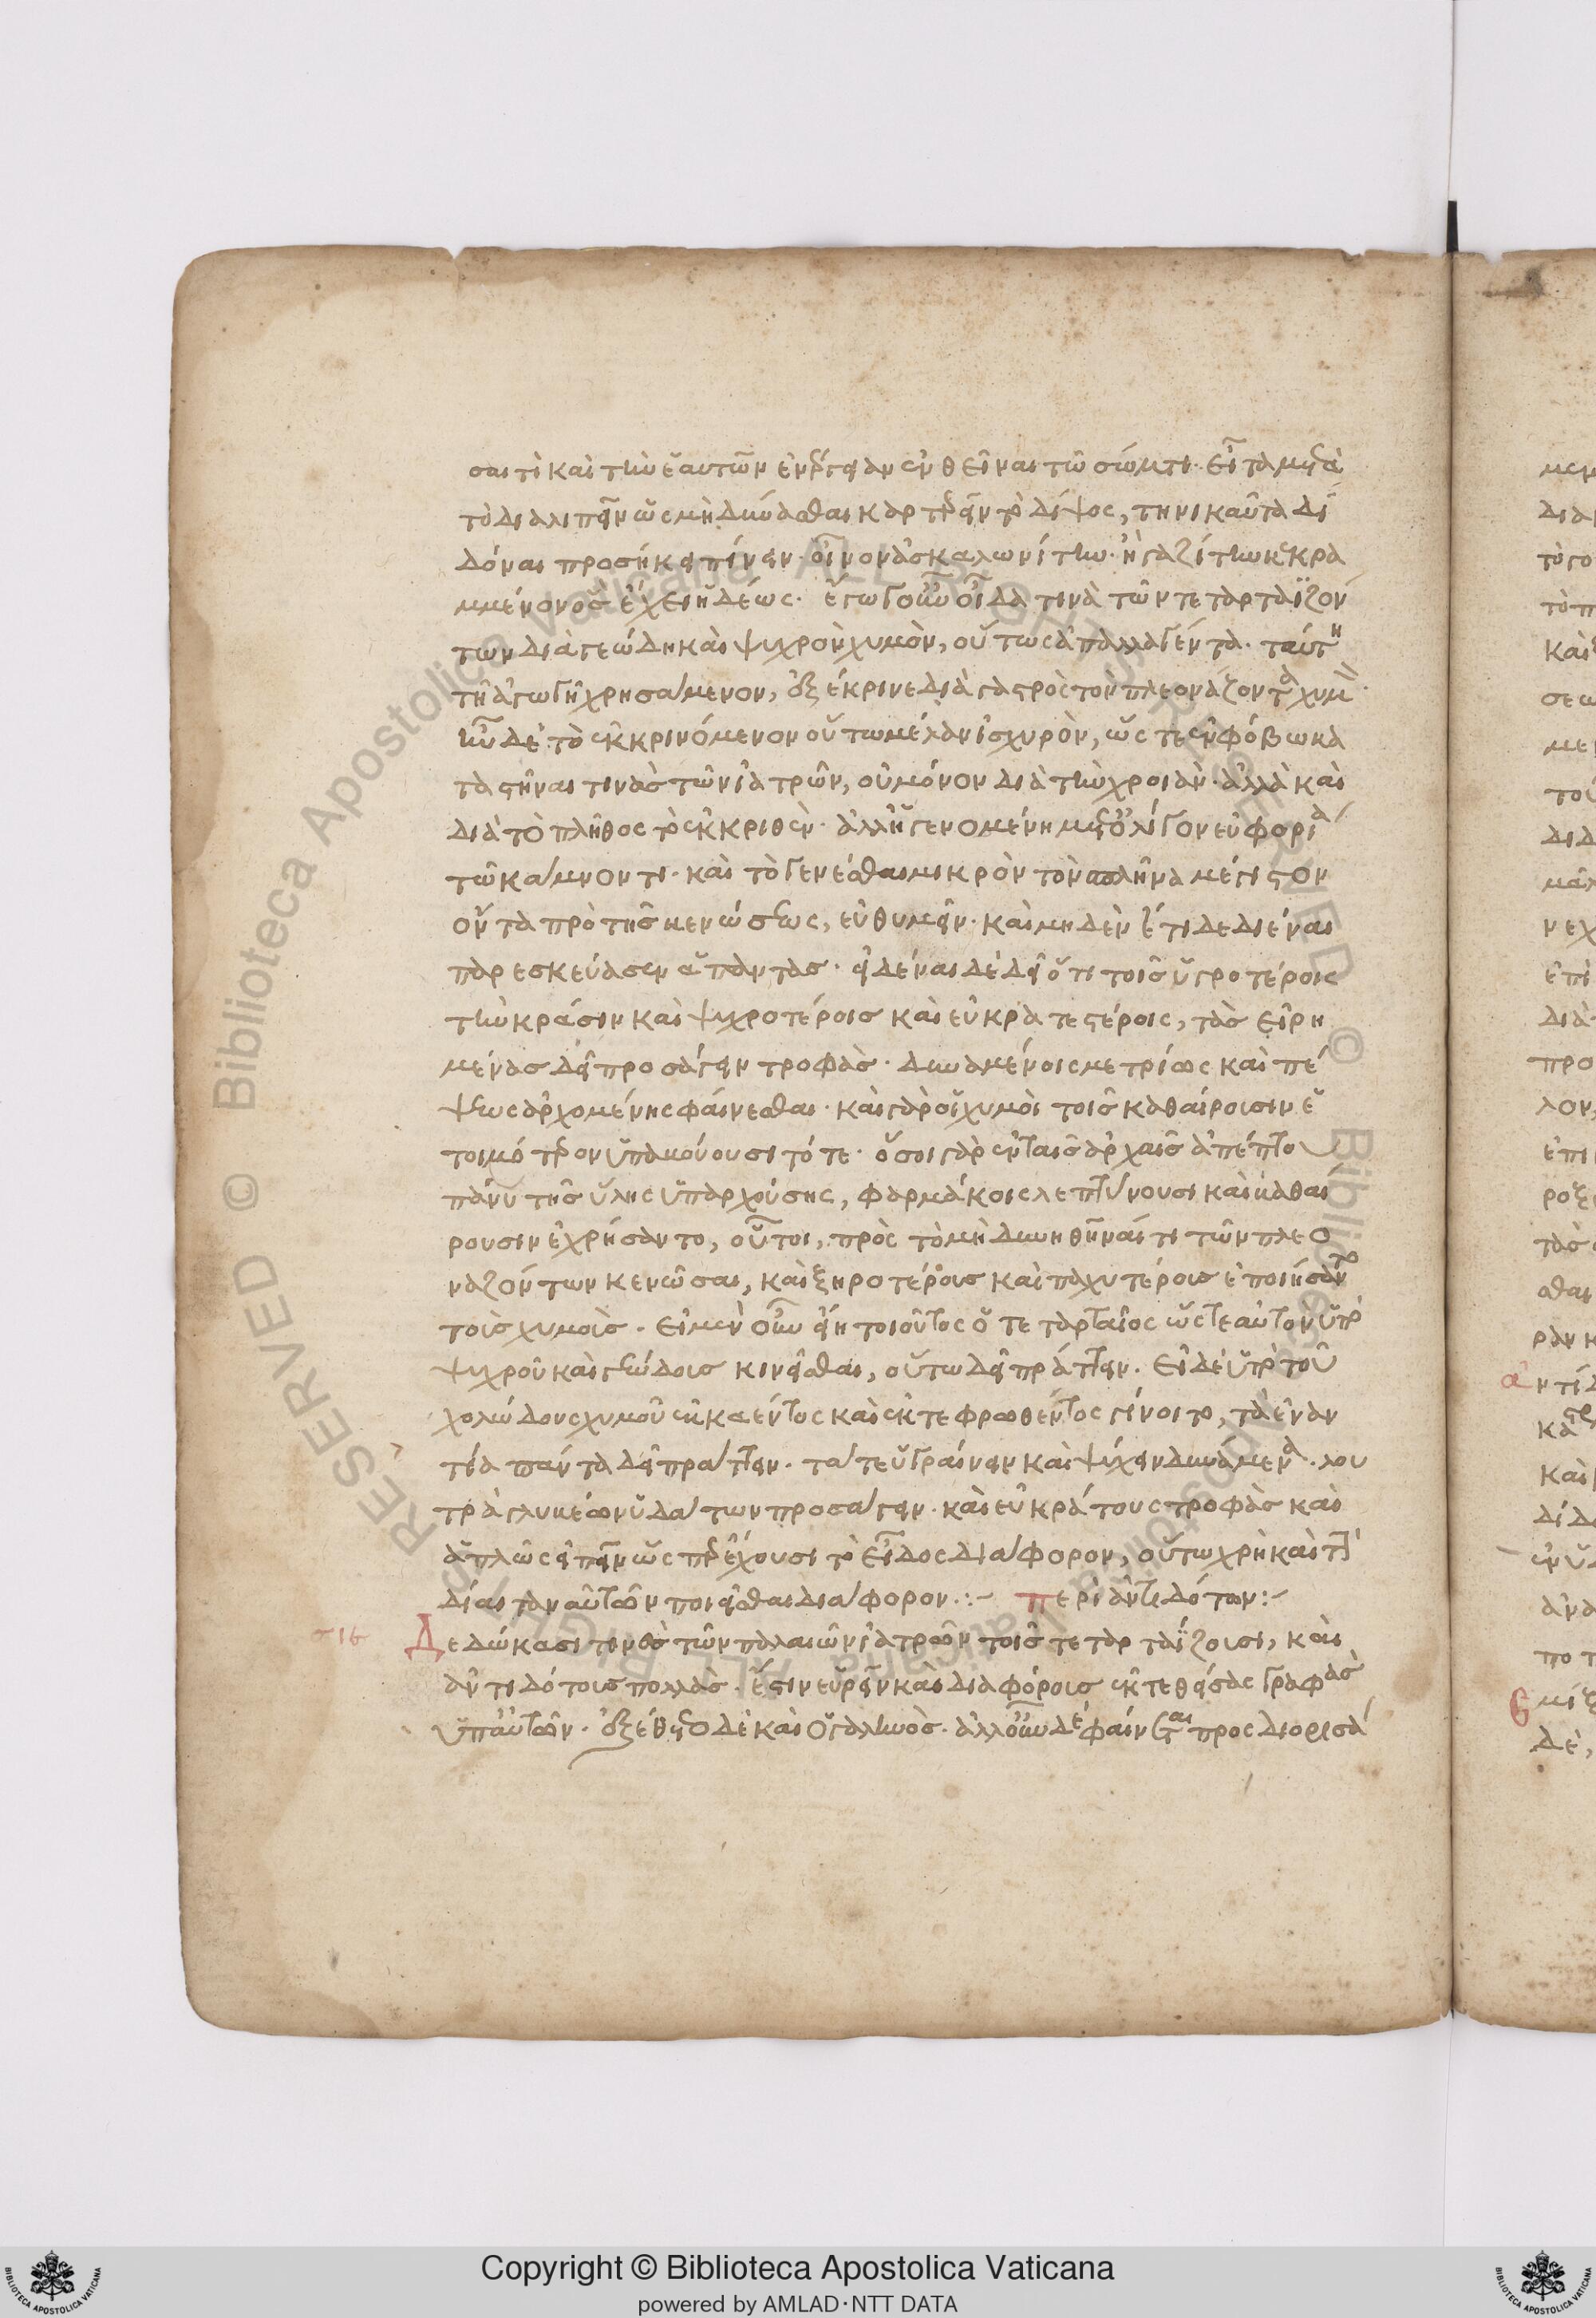 σαι τὶ καὶ τὴν ἑαυτῶν ἐνέργειαν ἐνθεῖναι τῶ σώματι. εἶτα μετὰ
τὸ διαλιπεῖν ὡς μὴ δύνασθαι καρτερεῖν τὸ δίψος, τηνικαῦτα δι
δόναι προσήκει πίνειν. οἶνον ἀσκαλωνίτην. ἢ γαζίτην κεκρα
μμένον ὃς ἔχει ἡδέως. ἔγωγ οὖν οἶδα τινὰ τῶν τεταρταϊζόν
των διὰ γεώδη καὶ ψυχρὸν χυμὸν, οὕτως ἀπαλλαγέντα. ταύτη
τῆ ἀγωγῆ χρησάμενον, ἐξέκρινε διὰ γαστρὸς τὸν πλεονάζοντα χυμὸν.
ἦν δὲ τὸ ἐκκρινόμενον οὕτω μέλαν ἰσχυρὸν, ὥς τε ἐν φόβω κα
ταστῆναι τινὰς τῶν ἰατρῶν, οὐ μόνον διὰ τὴν χροιὰν. ἀλλὰ καὶ
διὰ τὸ πλῆθος τὸ ἐκκριθὲν. ἀλλ ἡ γενομένη μετ ὀλίγον εὐφορία
τῶ κάμνοντι. καὶ τὸ γενέσθαι μικρὸν τὸν σπλῆνα μέγιστον
ὄντα πρὸ τῆς κενώσεως, εὐθυμεῖν. καὶ μηδὲν ἔτι δεδιέναι
παρεσκεύασεν ἅπαντας. εἰδέναι δὲ δεῖ ὅτι τοῖς ὑγροτέροις
τὴν κράσιν καὶ ψυχροτέροις καὶ εὐκρατεστέροις, τὰς εἰρη
μένας δεῖ προσάγειν τροφὰς. δυναμένοις μετρίως καὶ πέ
ψεως ἀρχομένης φαίνεσθαι. καὶ γὰρ οἱ χυμοὶ τοῖς καθαίρουσιν ἑ
τοιμότερον ὑπακούουσι τότε. ὅσοι γὰρ ἐν ταῖς ἀρχαῖς ἀπέπτου
πάνυ τῆς ὕλης ὑπαρχούσης, φαρμάκοις λεπτύνουσι καὶ καθαί
ρουσιν ἐχρήσαντο, οὗτοι, πρὸς τὸ μὴ δυνηθῆναί τι τῶν πλεο
ναζόντων κενῶσαι, καὶ ξηροτέρους καὶ παχυτέρους ἐποιήσαντο
τοὺς χυμοὺς. εἰ μὲν οὖν εἴη τοιοῦτος ὁ τεταρταῖος ὥστε αὐτὸν ὑπὸ
ψυχροῦ καὶ γεώδους κινεῖσθαι, οὕτω δεῖ πράττειν. εἰ δὲ ὑπὸ τοῦ
χολώδους χυμοῦ ἐκκαέντος καὶ ἐκτεφρωθέντος γίνοιτο, τὰ ἐναν
τία πάντα δεῖ πράττειν. τά τε ὑγραίνειν καὶ ψύχειν δυνάμενα. λου
τρὰ γλυκέων ὑδάτων προσάγειν. καὶ εὐκράτους τροφὰς καὶ
ἁπλῶς εἰπεῖν ὥσπερ ἔχουσι τὸ εἶδος διάφορον, οὕτω χρὴ καὶ τὴν
δίαιταν αὐτῶν ποιεῖσθαι διάφορον.:– περὶ ἀντιδότων:–
σιε Δεδώκασι τινὲς τῶν παλαιῶν ἰατρῶν τοῖς τεταρταΐζουσι, καὶ
ἀντιδότους πολλὰς. ἔστιν εὑρεῖν καὶ διαφόρους ἐκτεθείσας γραφὰς
ὑπ αὐτῶν. ἐξέθετο δὲ καὶ ὁ γαληνὸς. ἀλλ οὐδὲ φαίνεται προσδιορισά